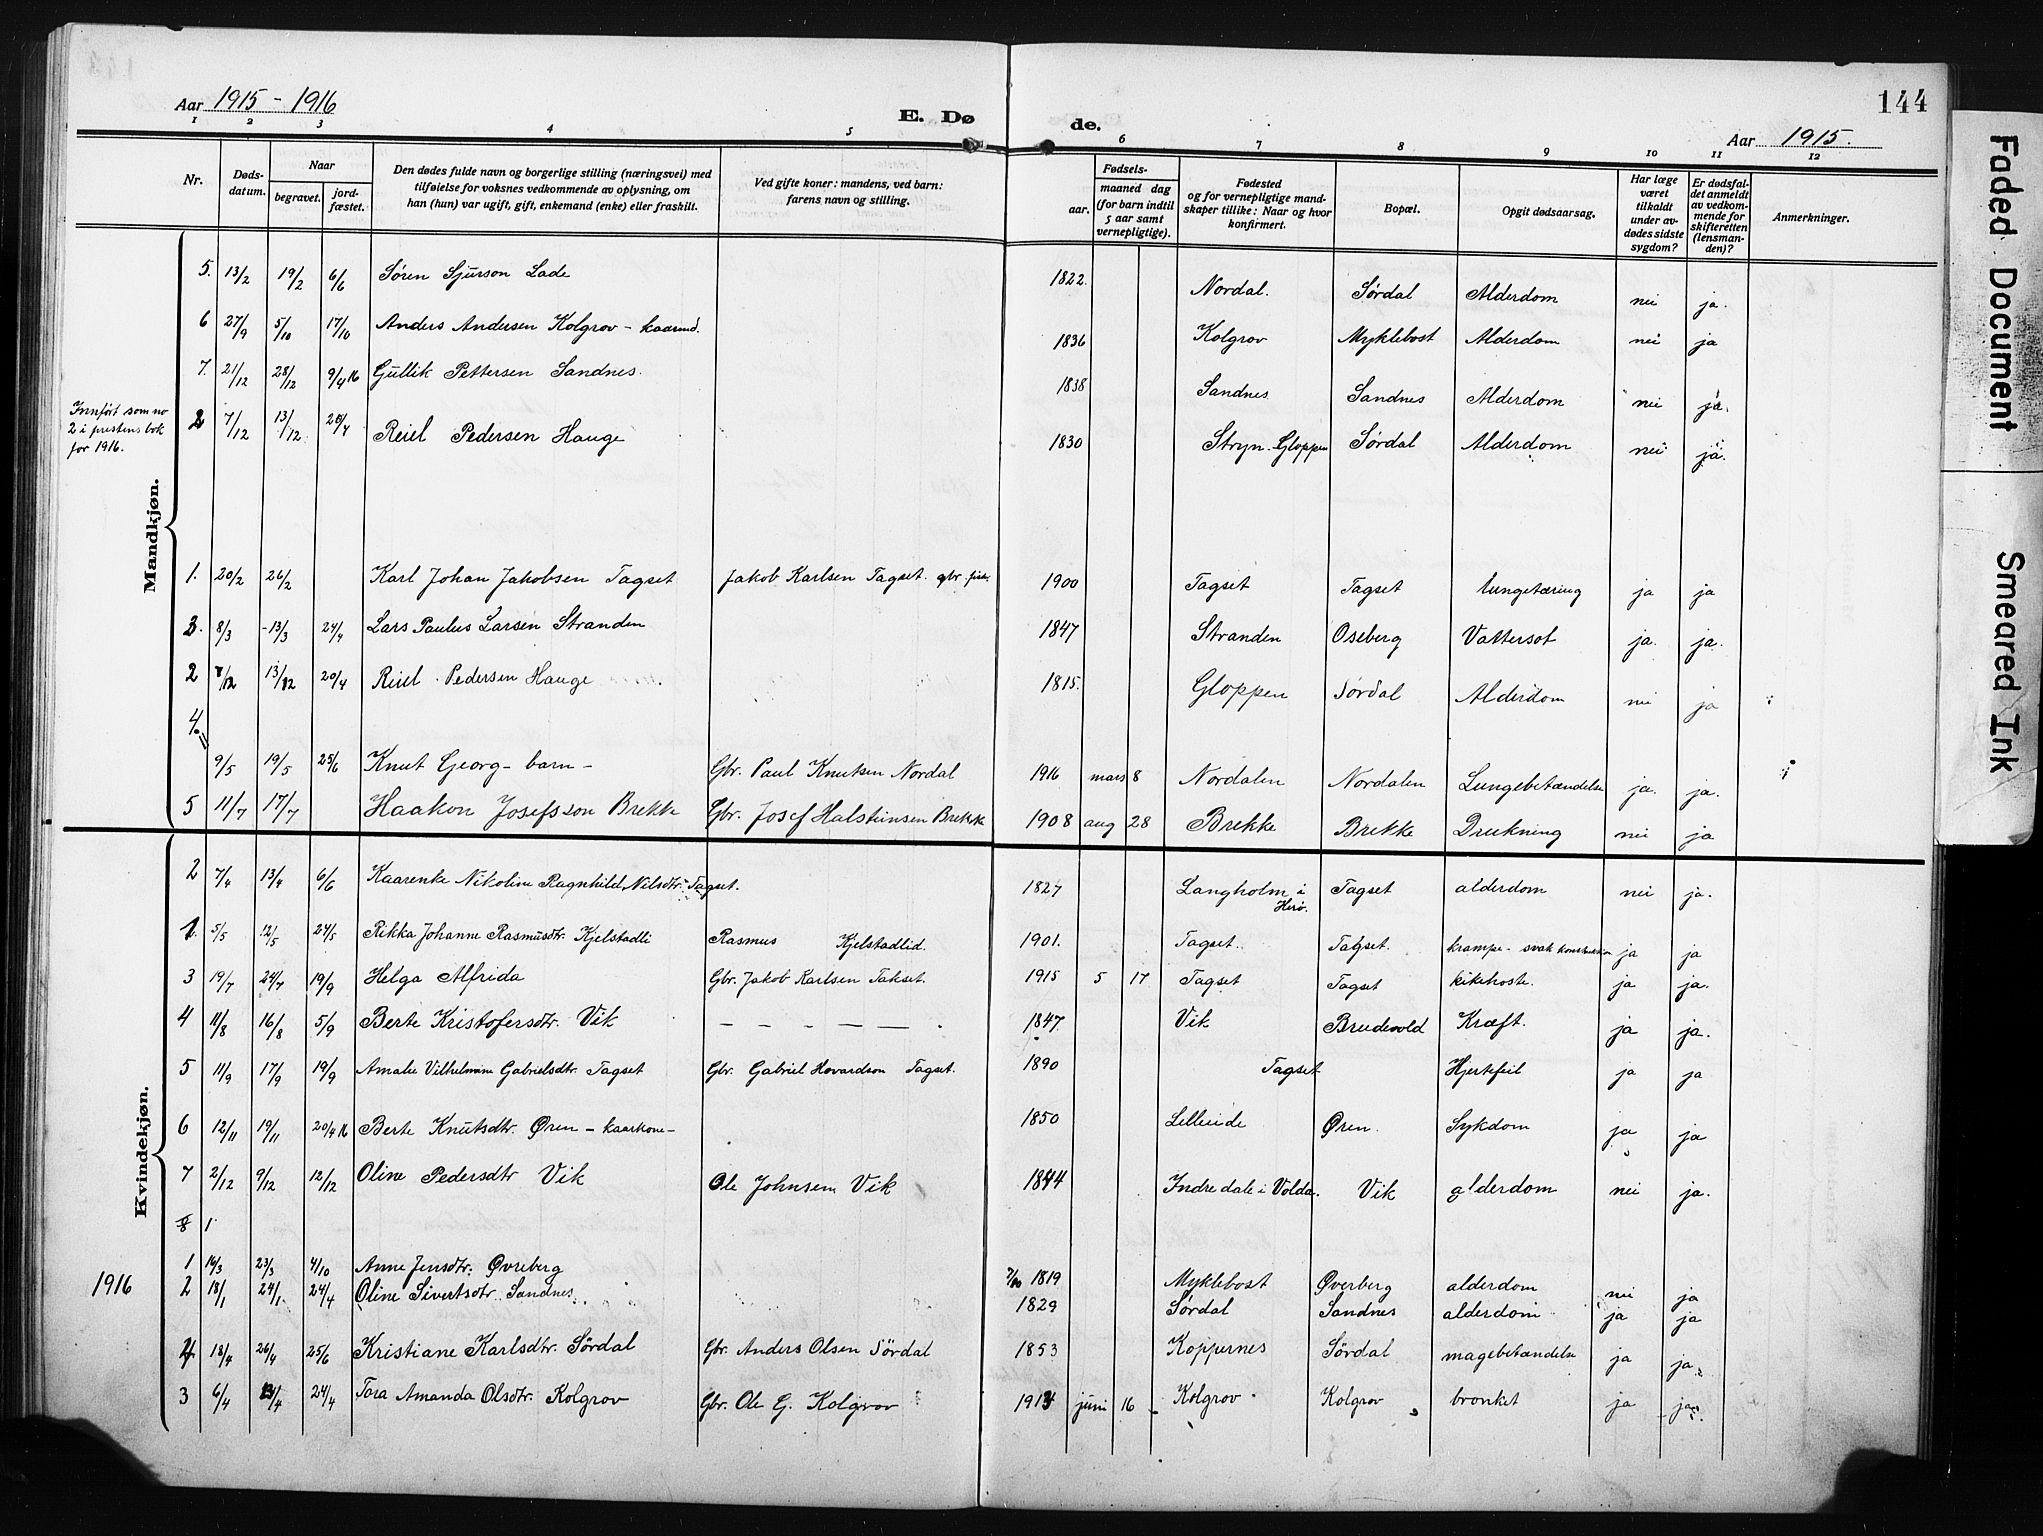 Aar 1915 - 1916
E. Døde.
144
Aar 1915.
1 2 3 4 5 6 7 8 9 10 11 12
Nr.
Døds-
datum.
Naar
begravet.
jord-
fæstet.
Den dødes fulde navn og borgerlige stilling (næringsvei) med
tilføielse for voksnes vedkommende av oplysning, om
han (hun) var ugift, gift, enkemand (enke) eller fraskilt.
Ved gifte koner: mandens, ved barn:
farens navn og stilling.
Fødsels-
aar.
maaned dag
(for barn indtil
5 aar samt
vernepligtige).
Fødested
og for vernepligtige mand-
skaper tillike: Naar og hvor
konfirmert.
Bopæl.
Opgit dødsaarsag.
Har læge
været
tilkaldt
under av-
dødes sidste
sygdom?
Er dødsfal-
det anmeldt
av vedkom-
mende for
skifteretten
(lensman-
den)?
Anmerkninger.
Mandkjøn.
5. 13/2 19/2 6/6 Søren Sjurson Lade 1822. Nordal. Sørdal Alderdom nei ja.
6 27/9 5/10 17/10 Anders Andersen Kolgrov - kaarmd. 1836 Kolgrov Myklebost Alderdom nei ja
7. 21/12 28/12 9/4 16 Gullik Pettersen Sandnes. 1838 Sandnes Sandnes Alderdom nei ja.
Innført som no
2 i prestens bok
for 1916.
2 7/12 13/12 20/4 Reiel Pedersen Hauge 1830 Stryn - Gloppen Sørdal Alderdom nei ja.
1. 20/2 26/2 Karl Johan Jakobsen Tagset Jakob Karlsen Tagset. gbr. 1900 Tagset Tagset lungetæring ja ja
3. 8/3 13/3 24/4 Lars Paulus Larsen Stranden 1847 Stranden Oseberg Vattersot ja. ja.
2 7/12 13/12 20/4 Reiel Pedersen Hauge 1815. Gloppen Sørdal Alderdom nei ja
4.
9/5 19/5 25/6 Knut Georg - barn - Gbr. Paul Knutsen Nordal 1916 mars 8 Nordalen Nordalen Lungebetændelse ja. ja.
5 11/7 17/7 Haakon Josefsson Brekke Gbr. Josef Halsteinsen Brekke 1908 aug 28 Brekke Brekke Drukning nei ja
Kvindekjøn.
2 7/4 13/4 6/6 Kaarenke Nikoline Ragnhild Nilsdtr. Tagset. 1827 Langholm i Herø. Tagset alderdom nei ja.
1. 5/5 12/5 24/5 Rikka Johanne Rasmusdtr. Kjelstadli Rasmus Kjelstadlid. 1901. Tagset. Tagset. krampe - svak konstitution ja ja
3 19/7 24/7 19/9 Helga Alfrida Gbr. Jakob Karlsen Takset. 1915 5 17 Tagset Tagset kikhoste. ja ja.
4 11/8 16/8 5/9 Berte Kristofersdtr. Vik - - - - - 1847. Vik Brudevold Kræft. ja ja.
5 11/9 17/9 19/9 Amalie Vilhelmine Gabrielsdtr. Tagset Gbr. Gabriel Hovardson Tagset. 1890 Tagset Hjertefeil ja ja
6 12/11 19/11 20/4 16 Berte Knutsdtr. Øren - kaarkone - 1850 Lilleeide Øren. Sykdom ja ja
7 2/12 9/12 12/12 Oline Pedersdtr Vik Ole Johnsen Vik 1844 Indre dale i Volda. Vik alderdom nei ja.
8 1
1916
1 14/3 23/3 4/10 Anne Jensdtr. Øvreberg 7/10 1819 Myklebost Øverberg alderdom nei ja
2 18/1 24/1 24/4 Oline Sivertsdtr Sandnes. 1829 Sørdal Sandnes alderdom ja ja
4 18/4 26/4 25/6 Kristiane Karlsdtr. Sørdal Gbr. Anders Olsen Sördal 1853 Koppernes Sørdal magebetændelse ja ja
3 6/4 13/4 24/4 Tora Amanda Olsdtr. Kolgrov Gbr. Ole G. Kolgrov 1914 juni 16 Kolgrov Kolgrov bronket ja ja.
Faded Document
Smeared Ink